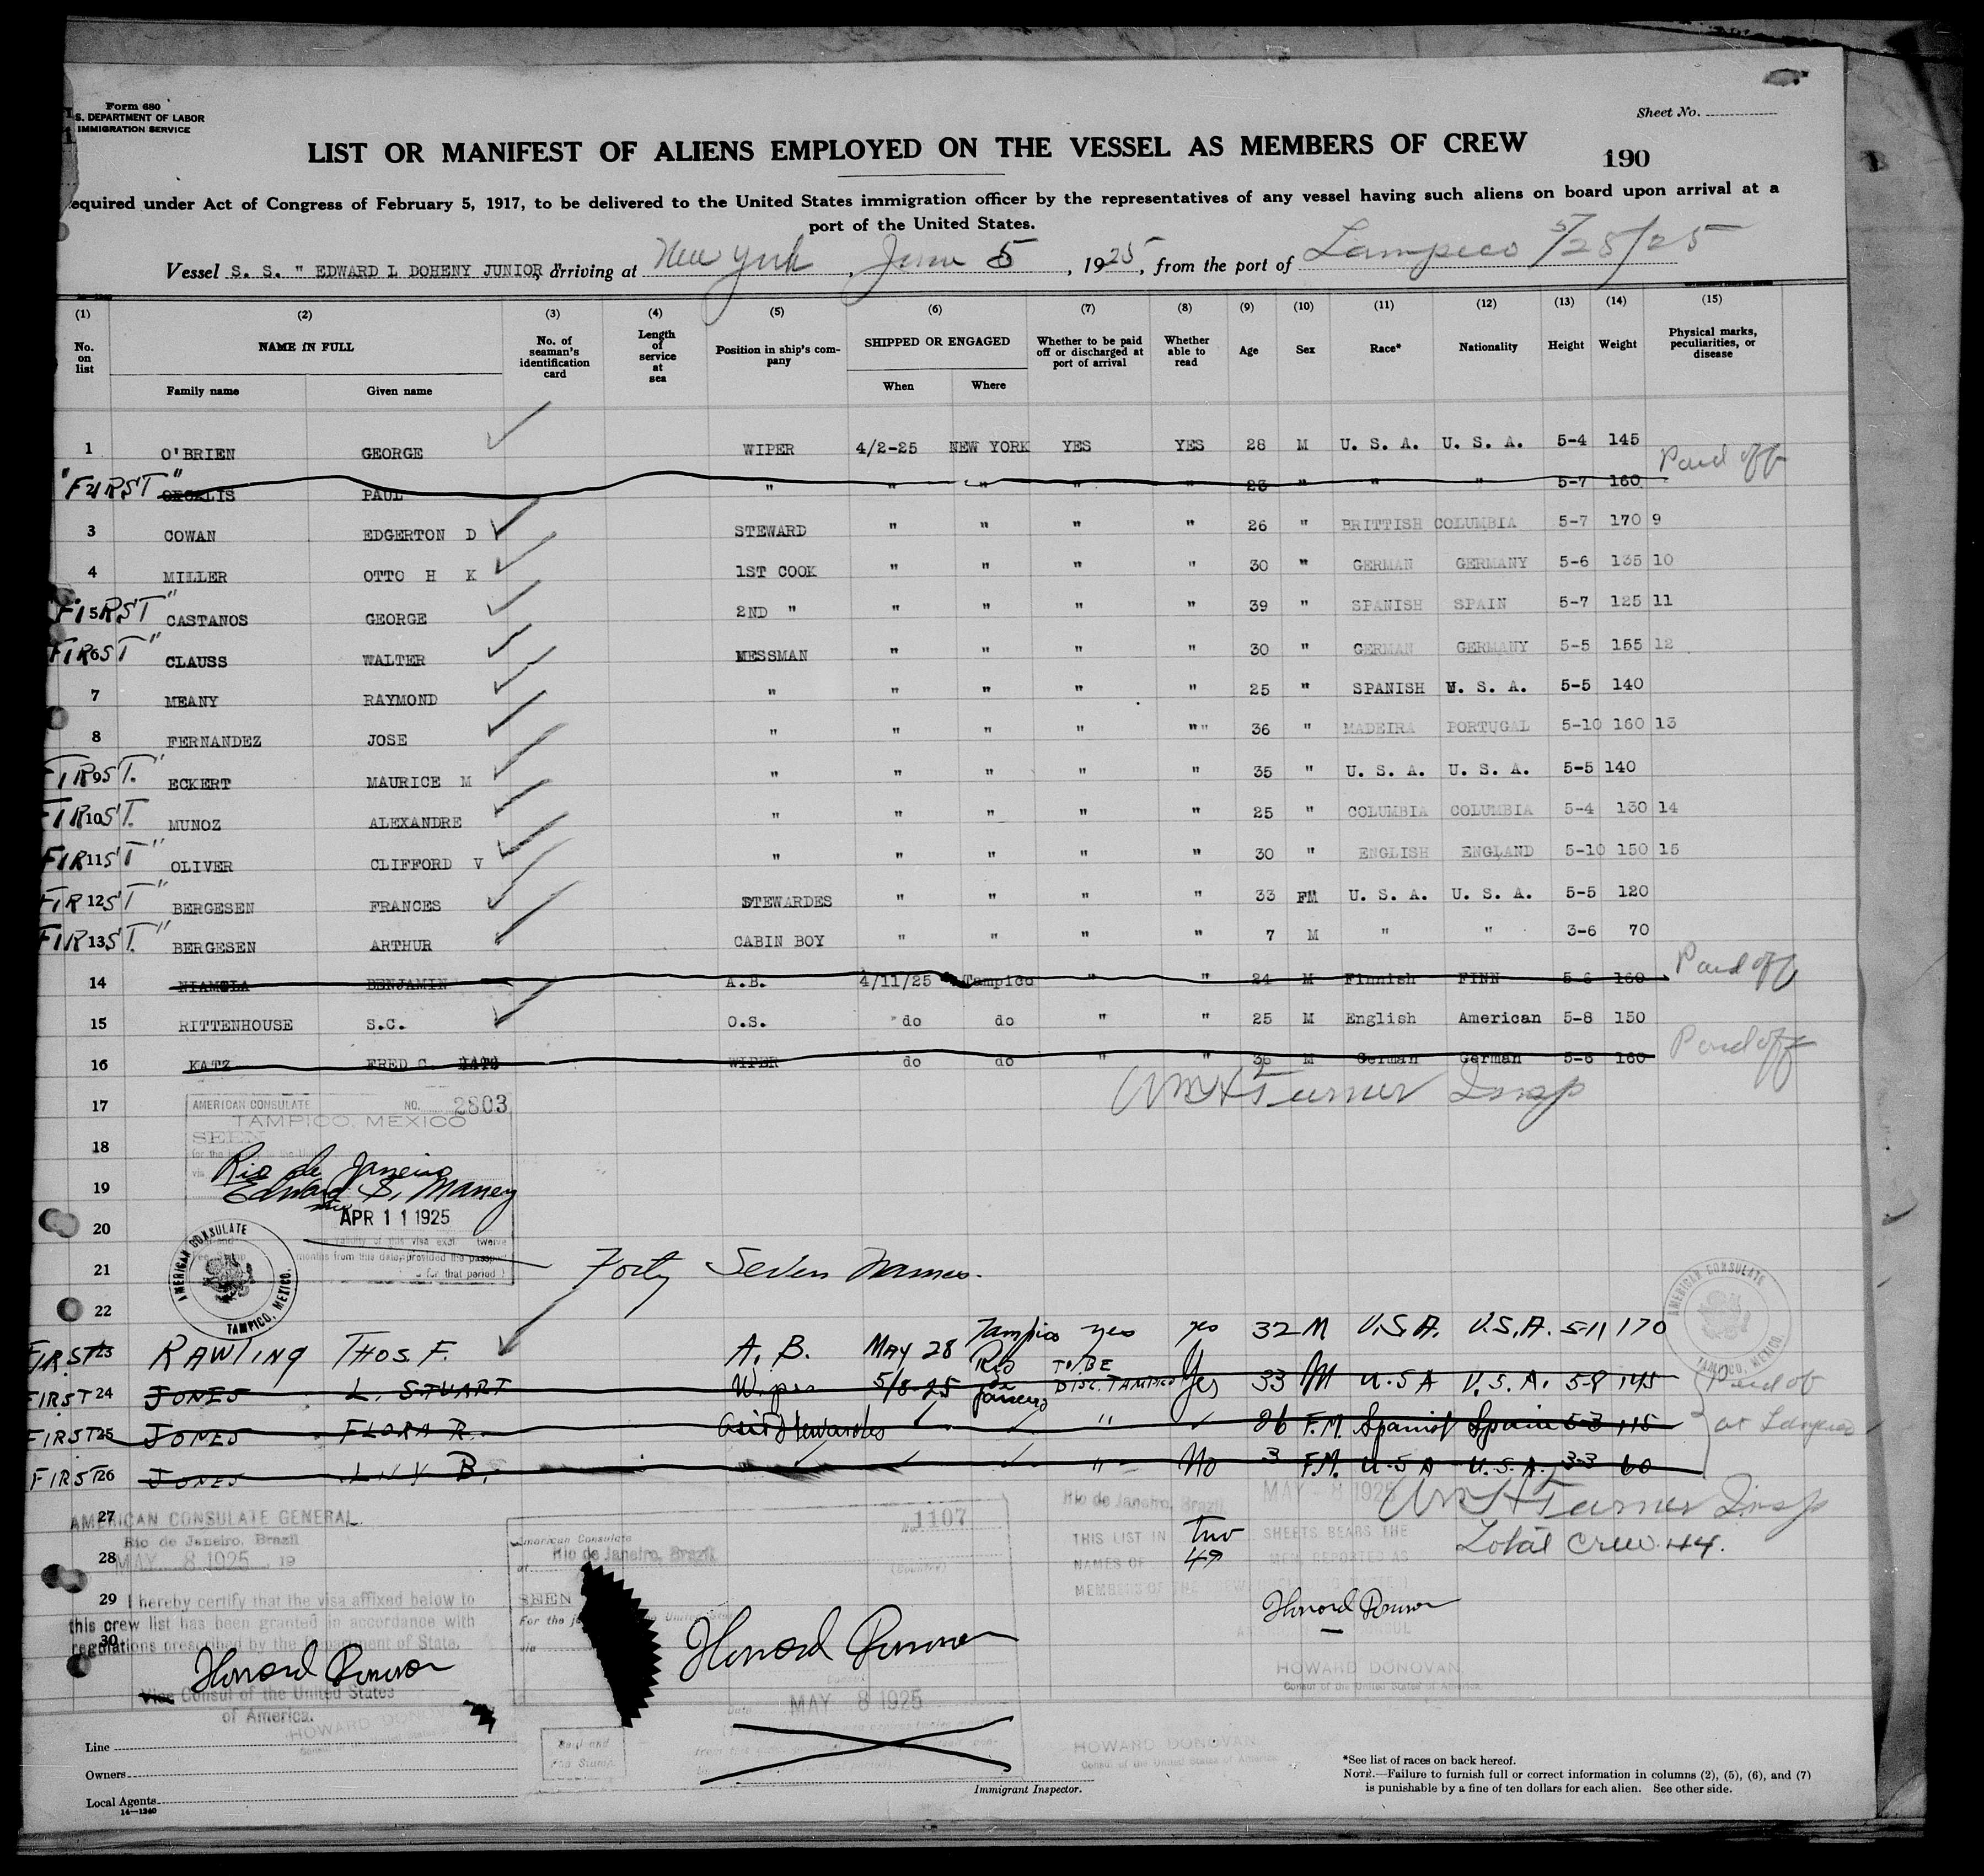 Form 680
S. DEPARTMENT OF LABOR
IMMIGRATION SERVICE
Sheet No.
LIST OR MANIFEST OF ALIENS EMPLOYED ON THE VESSEL AS MEMBERS OF CREW
190
equired under Act of Congress of February 5, 1917, to be delivered to the United States immigration officer by the representatives of any vessel having such aliens on board upon arrival at a
port of the United States.
Vessel S. S. " EDWARD L DOHENY JUNIOR, " arriving at New York, June 5, 1925, from the port of Tampico 5/28/25
(1) (2) (3) (4) (5) (6) (7) (8) (9) (10) (11) (12) (13) (14) (15)
No. on list NAME IN FULL No. of seaman's identification card Length of service at sea Position in ship's company SHIPPED OR ENGAGED Whether to be paid off or discharged at port of arrival Whether able to read Age Sex Race* Nationality Height Weight Physical marks, peculiarities, or disease
Family name Given name When Where
1 O'BRIEN GEORGE WIPER 4/2-25 NEW YORK YES YES 28 M U. S. A. U. S. A. 5-4 145
"FIRST" PAUL " " " " " 23 " " " 5-7 160 Paid off
3 COWAN EDGERTON D STEWARD " " " " 26 " BRITTISH COLUMBIA 5-7 170 9
4 MILLER OTTO H K 1ST COOK " " " " 30 " GERMAN GERMANY 5-6 135 10
FIRST" 5 CASTANOS GEORGE 2ND " " " " " 39 " SPANISH SPAIN 5-7 125 11
FIRST" 6 CLAUSS WALTER MESSMAN " " " " 30 " GERMAN GERMANY 5-5 155 12
7 MEANY RAYMOND " " " " " 25 " SPANISH U. S. A. 5-5 140
8 FERNANDEZ JOSE " " " " "" 36 " MADEIRA PORTUGAL 5-10 160 13
FIRST." 9 ECKERT MAURICE M " " " " " 35 " U. S. A. U. S. A. 5-5 140
FIRST. 10 MUNOZ ALEXANDRE " " " " " 25 " COLUMBIA COLUMBIA 5-4 130 14
FIRST" 11 OLIVER CLIFFORD V " " " " " 30 " ENGLISH ENGLAND 5-10 150 15
FIRST" 12 BERGESEN FRANCES STEWARDES " " " " 33 FM U. S. A. U. S. A. 5-5 120
FIRST." 13 BERGESEN ARTHUR CABIN BOY " " " " 7 M " " 3-6 70
14 NIAMOLA BENJAMIN A.B. 4/11/25 Tampico " " 24 M Finnish FINN 5-6 160 Paid off
15 RITTENHOUSE S.C. O.S. do do " " 25 M English American 5-8 150
16 KATZ FRED C. WIPER do do " " 36 M German German 5-6 160 Paid off
Wm H Turner Insp
17 AMERICAN CONSULATE NO. 2803
TAMPICO, MEXICO
SEEN
18
Rio de Janeiro
19 Edward S. Maney
APR 11 1925
20
validity of this visa exp. twelve
months from this date, provided the passport
for that period
AMERICAN CONSULATE TAMPICO, MEXICO.
21 Forty Seven Names.
22
AMERICAN CONSULATE TAMPICO, MEXICO.
FIRST 23 RAWLING THOS. F. A. B. MAY 28 Tampico yes yes 32 M U.S.A. U.S.A. 5-11 170
FIRST 24 JONES L. STUART Wiper 5/8-25 Rio de Janeiro TO BE DISC. TAMPICO Yes 33 M U.S.A U.S.A. 5-8 145 Paid off
FIRST 25 JONES FLORA R. Asst Stewardes " 26 F.M. Spanish Spain 5-3 115 at Tampico
FIRST 26 JONES LILY B. " " No 3 F.M. U.S.A U.S.A. 3-3 60
Wm H Turner Insp
27 AMERICAN CONSULATE GENERAL,
Rio de Janeiro, Brazil
28 MAY 8 1925, 19
29 I hereby certify that the visa affixed below to
this crew list has been granted in accordance with
30 regulations prescribed by the Department of State.
Howard Donovan
Vice Consul of the United States
of America.
HOWARD DONOVAN
No. 1107
American Consulate
at Rio de Janeiro, Brazil
(Country)
SEEN
For the
via
Howard Donovan
Date MAY 8 1925
Rio de Janeiro, Brazil, MAY - 8 1925
THIS LIST IN two SHEETS BEARS THE
NAMES OF 49 MEN REPORTED AS
MEMBERS OF THE CREW
Total Crew 44.
Howard Donovan
HOWARD DONOVAN,
Consul of the United States of America.
HOWARD DONOVAN
Consul of the United States of America
Line
Owners
Local Agents
14—1240
Immigrant Inspector.
*See list of races on back hereof.
NOTE.—Failure to furnish full or correct information in columns (2), (5), (6), and (7)
is punishable by a fine of ten dollars for each alien. See other side.